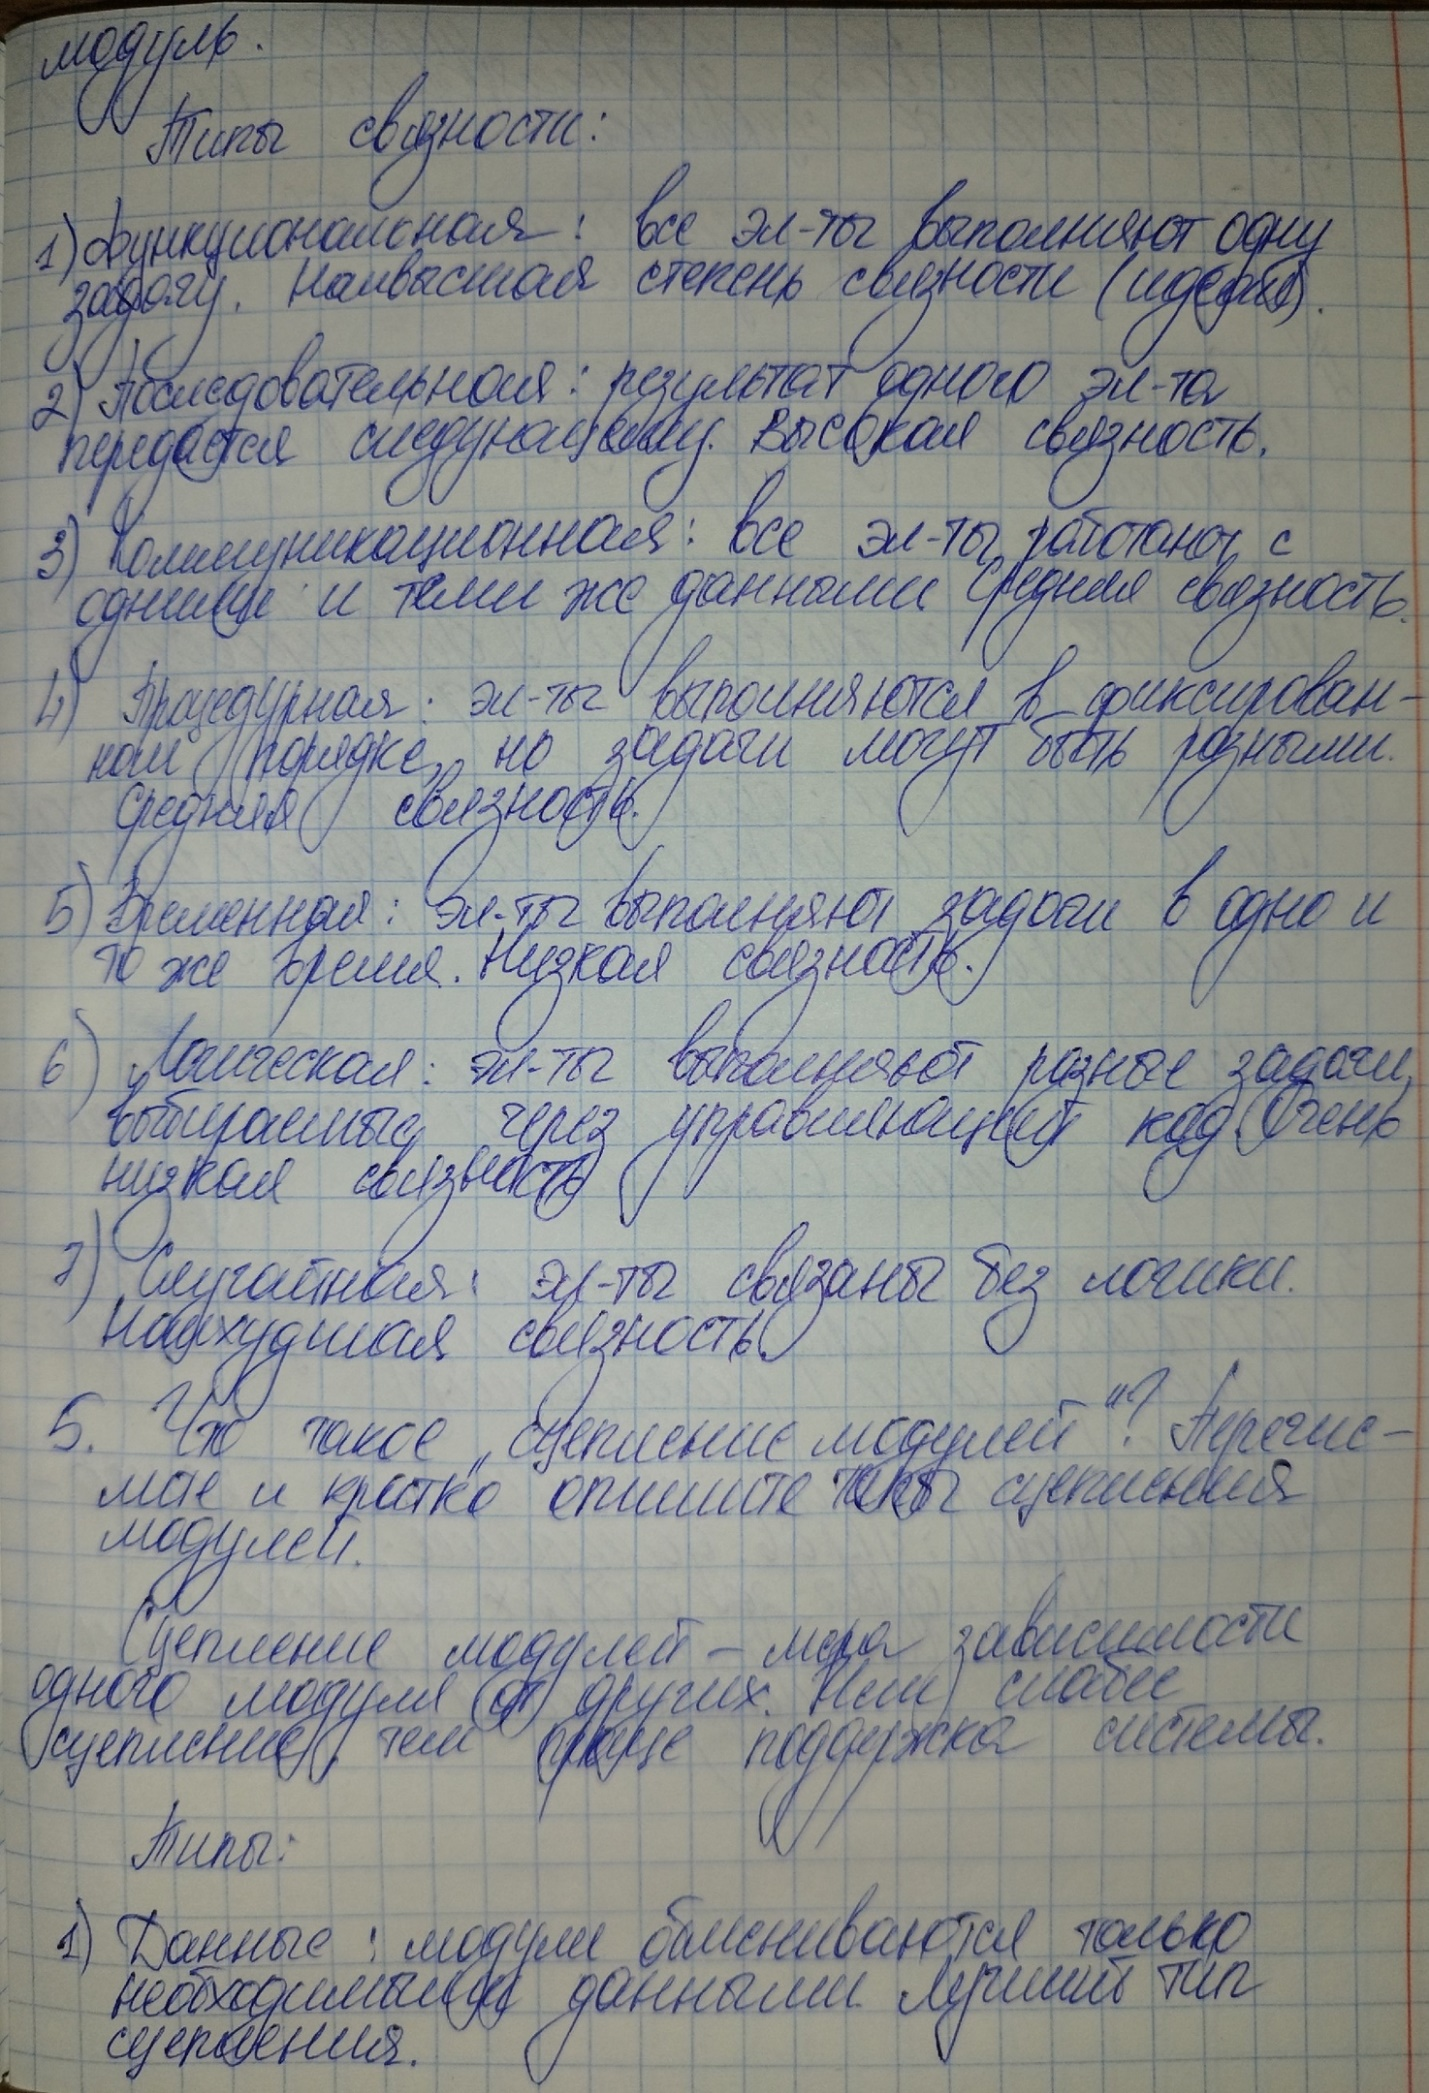 модуль.
Типы связности:
1) Функциональная: все эл-ты выполняют одну
задачу. Наивысшая степень связности (идеал).
2) Последовательная: результат одного эл-та
передаётся следующему. Высокая связность.
3) Коммуникационная: все эл-ты работают с
одними и теми же данными. Средняя связность.
4) Процедурная: эл-ты выполняются в фиксирован-
ном порядке, но задачи могут быть разными.
Средняя связность.
5) Временная: эл-ты выполняют задачи в одно и
то же время. Низкая связность.
6) Логическая: эл-ты выполняют разные задачи,
выбираемые через управляющий код. Очень
низкая связность
7) Случайная: эл-ты связаны без логики.
Наихудшая связность.
5. Что такое „сцепление модулей"? Перечис-
лите и кратко опишите типы сцепления
модулей.
Сцепление модулей – мера зависимости
одного модуля от других. Чем слабее
сцепление, тем проще поддержка системы.
Типы:
1) Данные: модули обмениваются только
необходимыми данными. Лучший тип
сцепления.